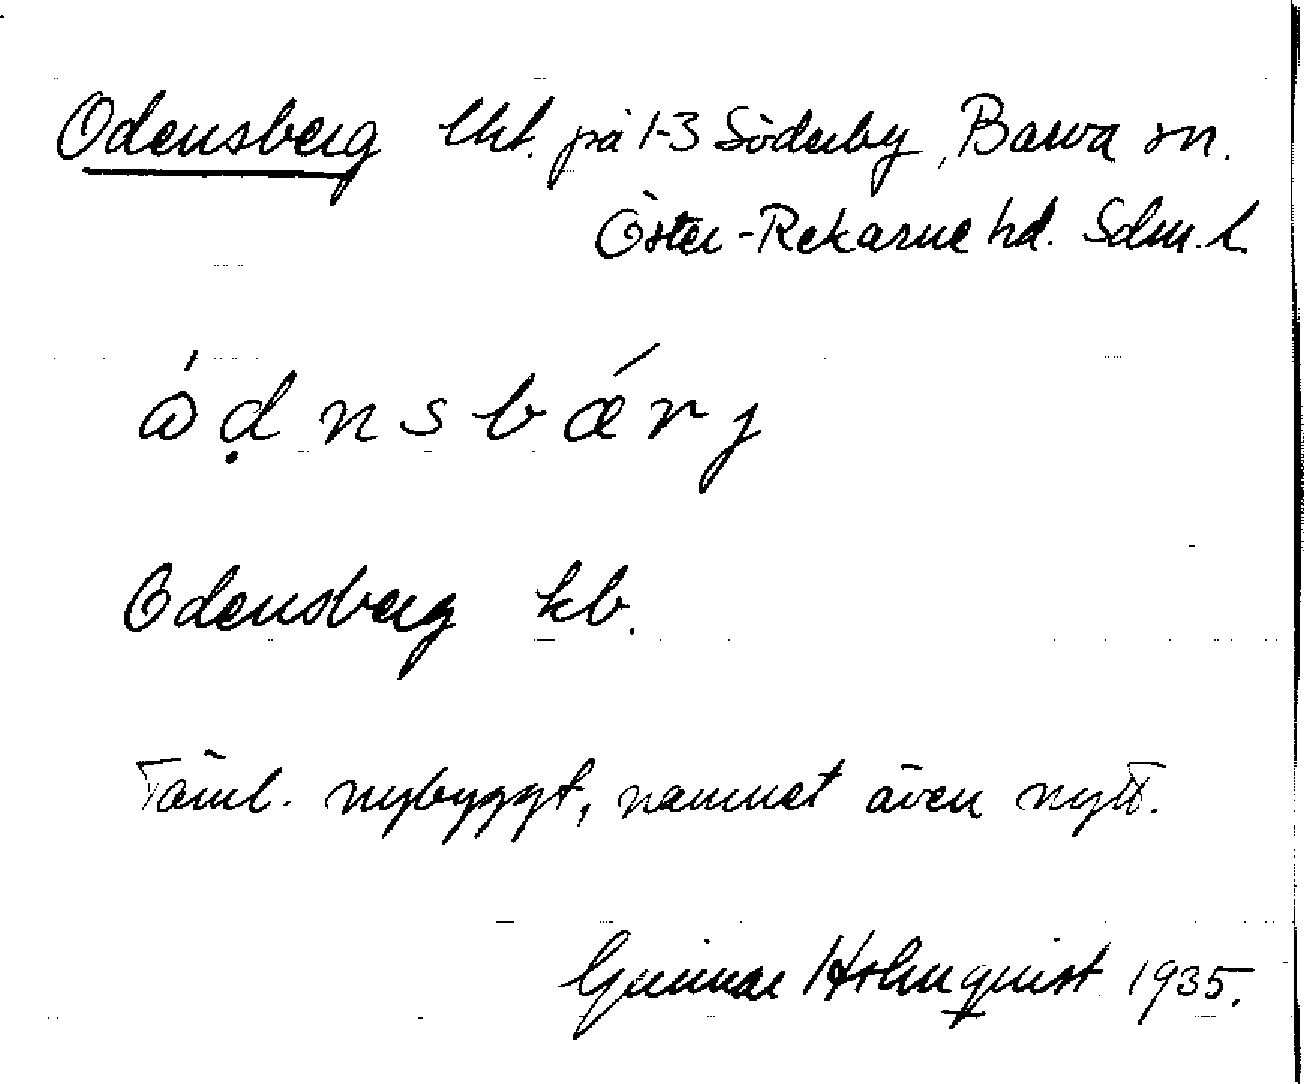 Odensberg lht. på 1-3 Söderby, Barva sn.
Öster-Rekarne hd. Sdm. l.
ȯ́ḍnsbǽrj
Odensberg kb.
Täml. nybyggt, namnet även nytt.
Gunnar Holmquist 1935.